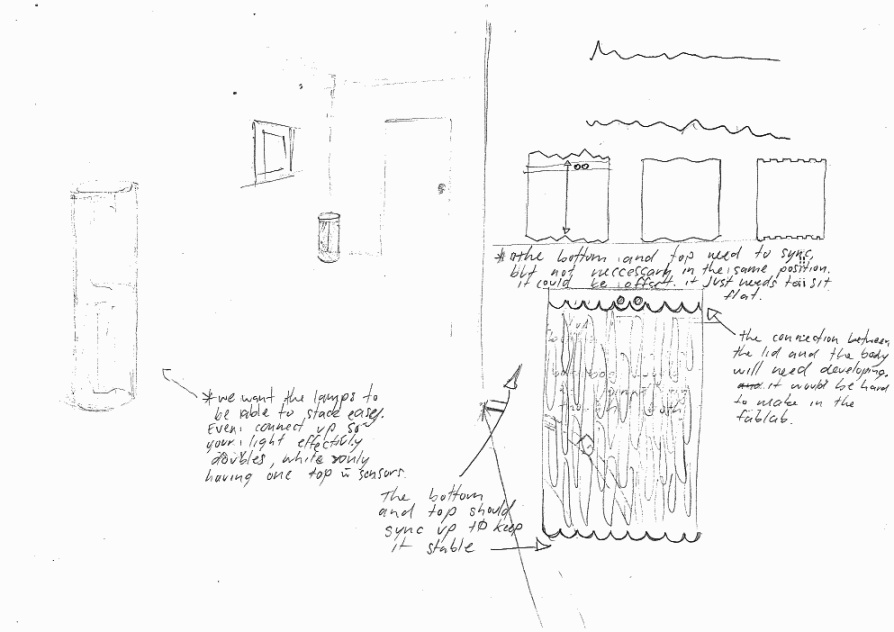 * the bottom and top need to sync,
but not neccessary in the same position.
it could be offset. it just needs to sit
flat.
the connection between
the lid and the body
will need developing.
it would be hard
to make in the
fablab.
* we want the lamps to
be able to stack easy.
Even connect up so
your light effectivly
doubles, while only
having one top w sensors.
The bottom
and top should
sync up to keep
it stable